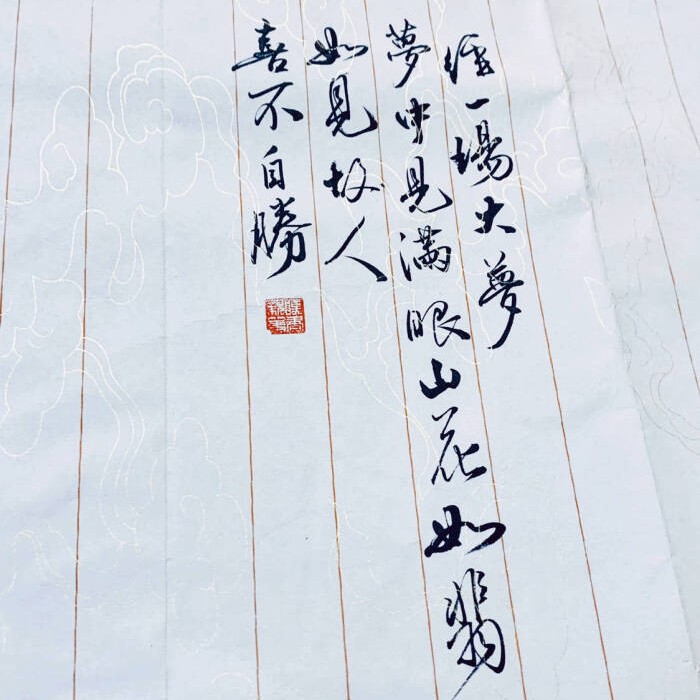 經一場大夢
夢中見滿眼山花如翡
如見故人
喜不自勝